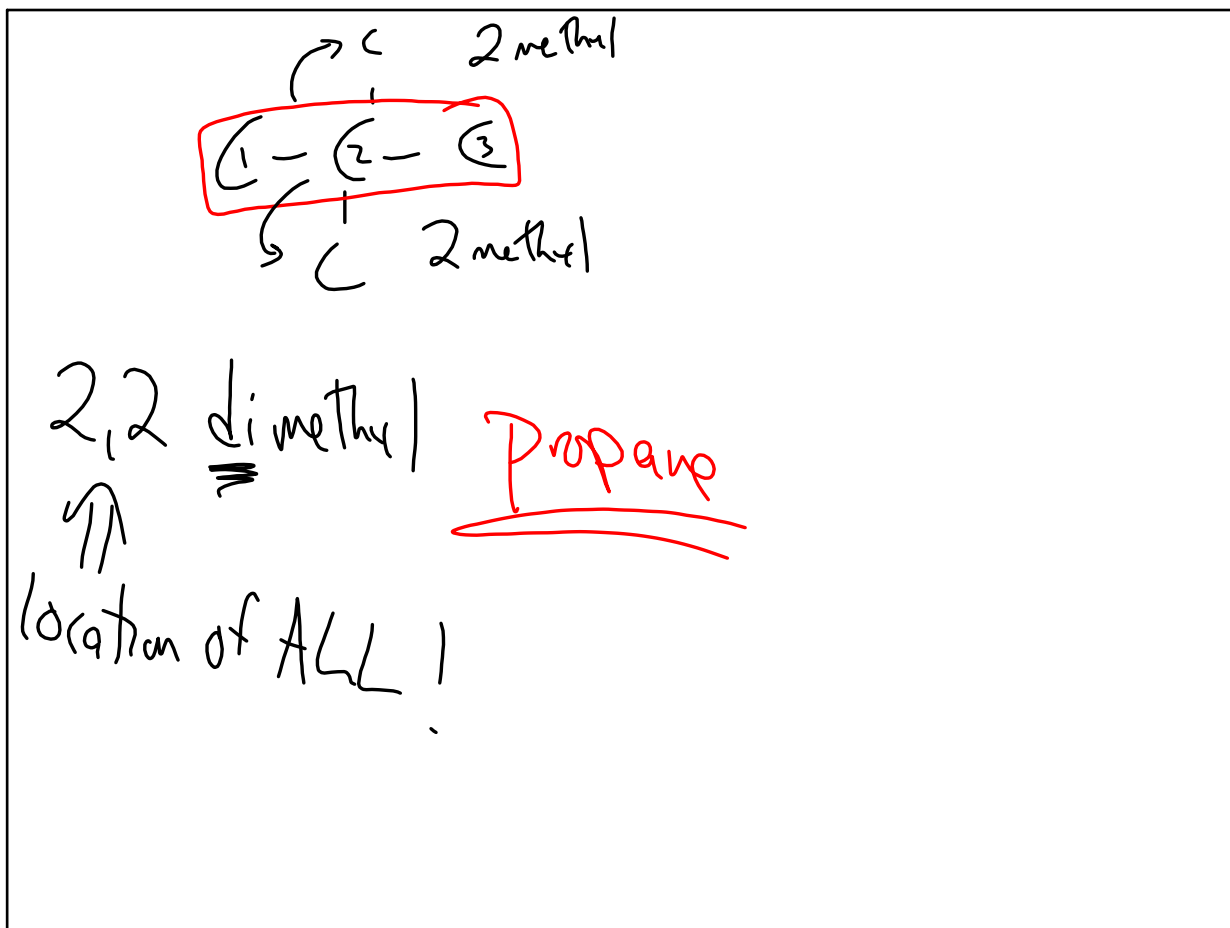 C 2 methyl
C1 - C2 - C3
C 2 methyl
2,2 dimethyl propane
location of ALL!